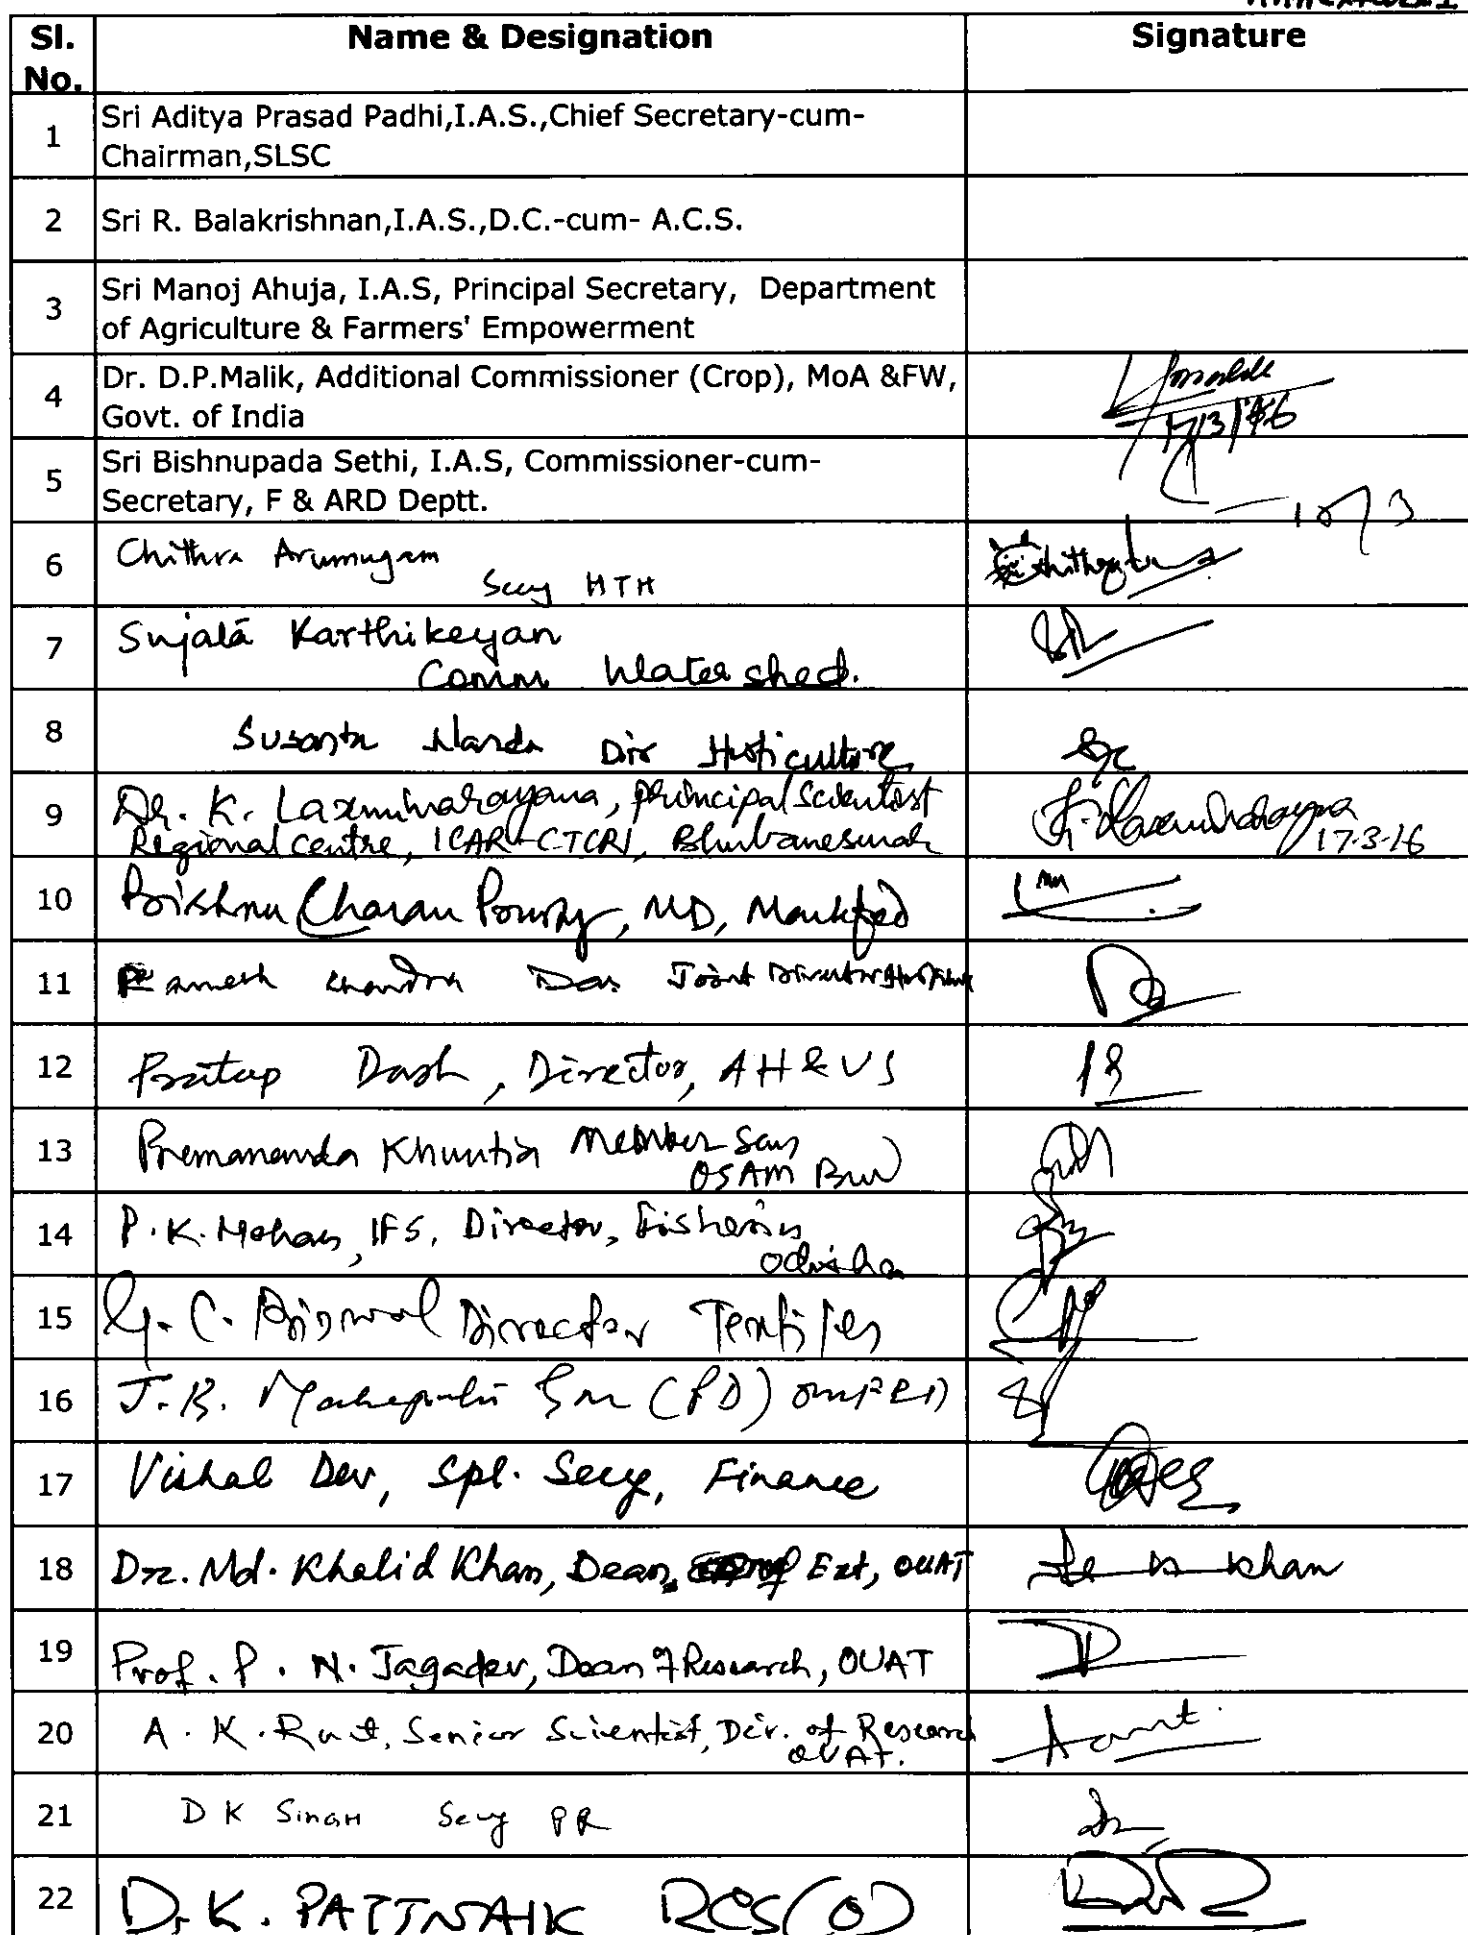 Sl. No. Name & Designation Signature
1 Sri Aditya Prasad Padhi,I.A.S.,Chief Secretary-cum-
Chairman,SLSC
2 Sri R. Balakrishnan,I.A.S.,D.C.-cum- A.C.S.
3 Sri Manoj Ahuja, I.A.S, Principal Secretary, Department
of Agriculture & Farmers' Empowerment
4 Dr. D.P.Malik, Additional Commissioner (Crop), MoA &FW,
Govt. of India
5 Sri Bishnupada Sethi, I.A.S, Commissioner-cum-
Secretary, F & ARD Deptt.
6 Chithra Arumugam
Secy HTH
7 Sujata Karthikeyan
Comm Watershed.
8 Susanta Nanda Dir Horticulture
9 Dr. K. Laxminarayana, Principal Scientist
Regional Centre, ICAR-CTCRI, Bhubaneswar
17-3-16
10 Charan MD, Markfed
11 Ramesh Chandra Das Joint Director
12 Pratap Dash, Director, AH & VS
13 Premananda Khuntia Member Secy
OSAM
14 P.K. IFS, Director, Fisheries
Odisha
15 G.C. Director Textiles
16 J.B. (PD)
17 Vishal Dev, Spl. Secy, Finance
18 Dr. Md. Khalid Khan, Dean, Ext, OUAT Khan
19 Prof. P. N. Jagadev, Dean of Research, OUAT
20 A. K. Senior Scientist, Dir. of Research
OUAT.
21 D K Singh Secy PR
22 D.K. PATTNAIK RCS(O)